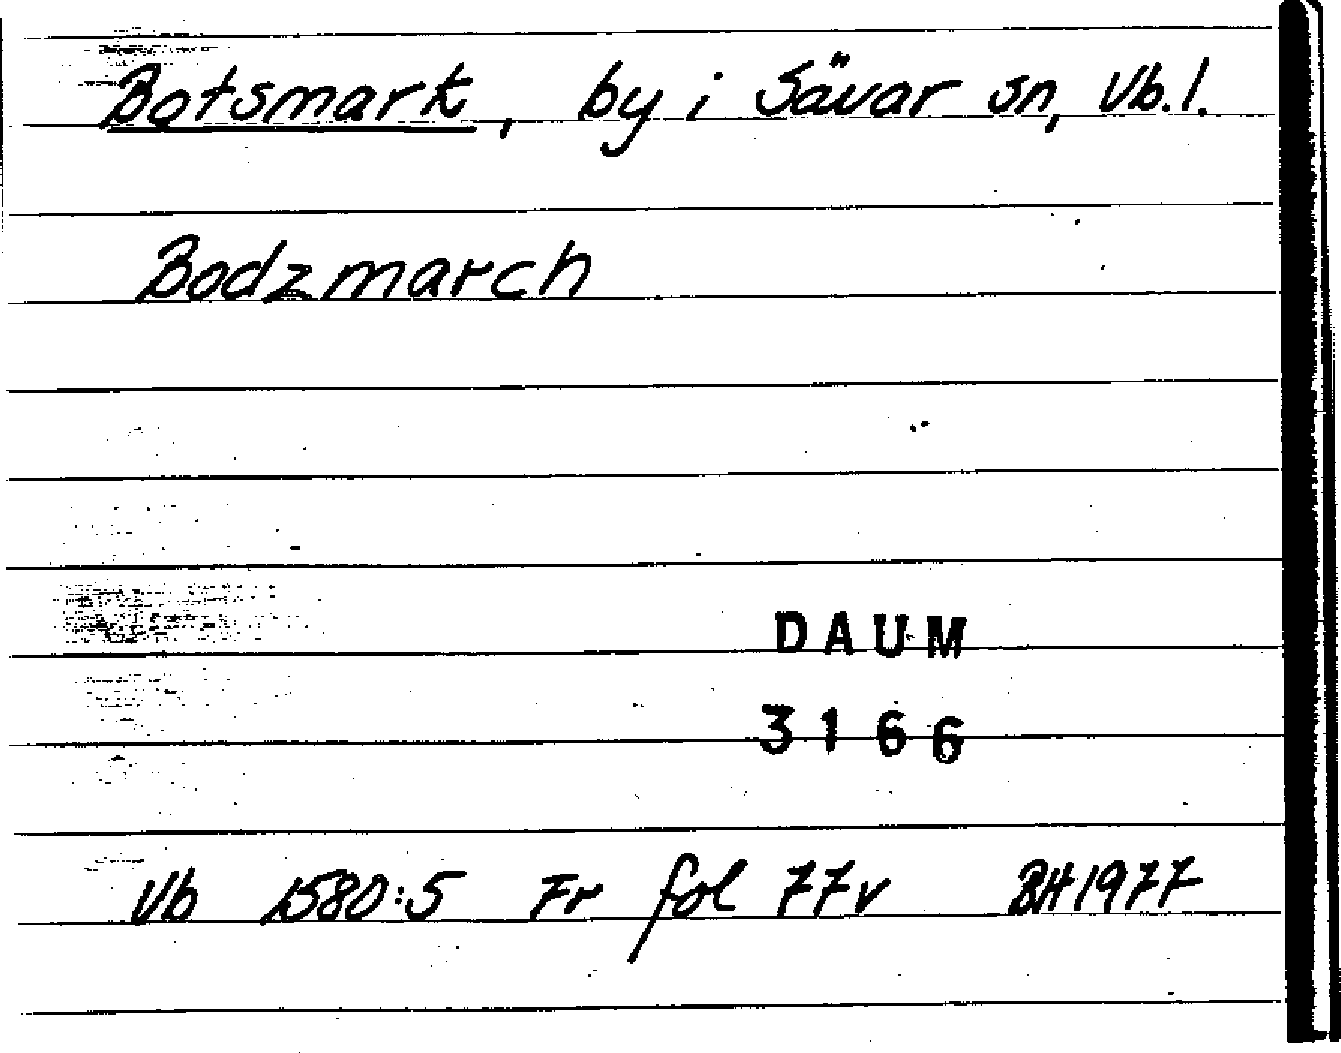 Botsmark, by i Sävar sn, Vb.l.
Bodzmarch
DAUM
3166
Vb 1580:5 Fr fol 77v BH1977